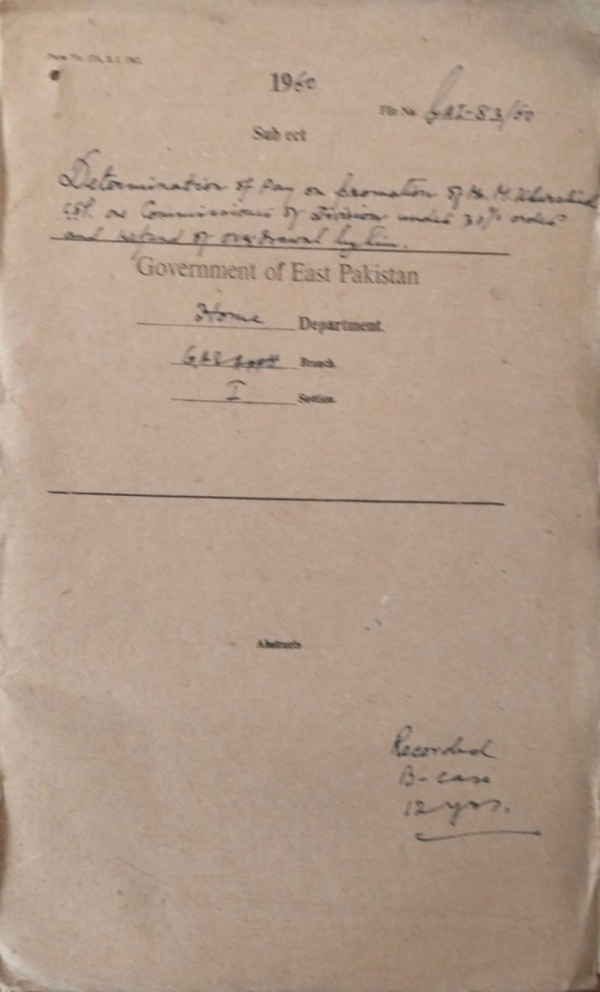 1960
File No. GAI-83/60
Subject
Determination of Pay on promotion of Mr. M. Khurshid
CSP. as Commissioner of Division under 30% orders
and refund of overdrawal by him.
Government of East Pakistan
Home Department.
Branch
I Section.
Abstracts
Recorded
B-case
12 yrs.